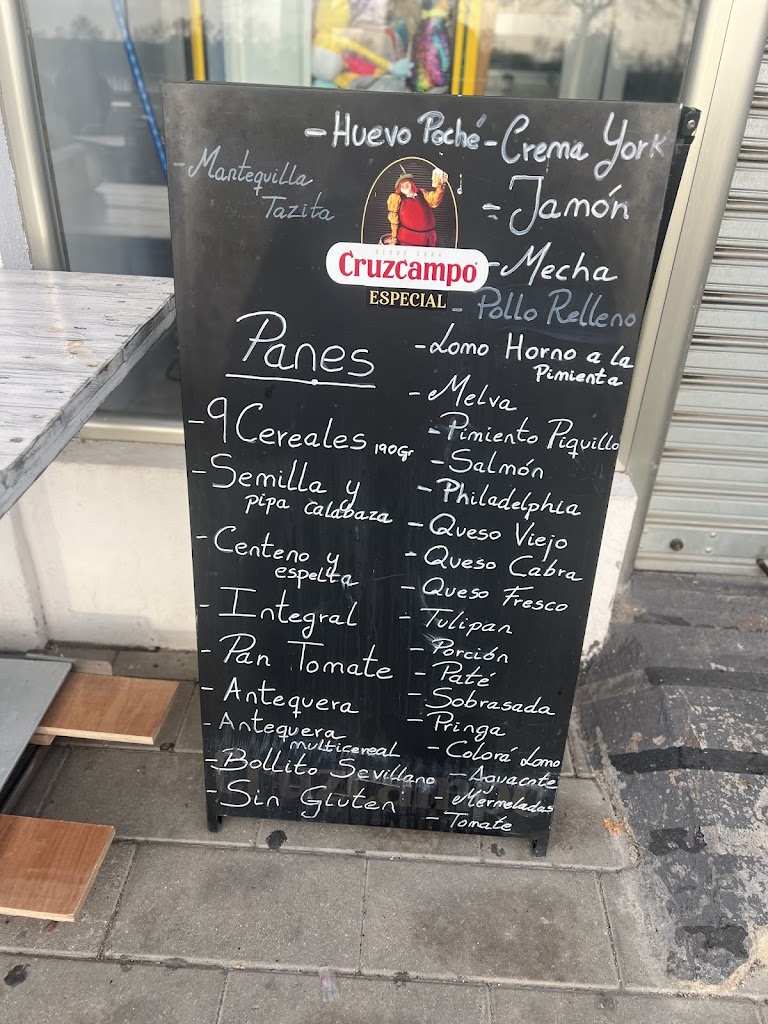 - Huevo Poché - Crema York
- Mantequilla
Tazita
- Jamón
Cruzcampo
ESPECIAL
- Mecha
- Pollo Relleno
- Lomo Horno a la
Pimienta
Panes
- 9 Cereales 190Gr
- Semilla y
pipa calabaza
- Centeno y
espelta
- Integral
- Pan Tomate
- Antequera
- Antequera
multicereal
- Bollito Sevillano
- Sin Gluten
- Melva
- Pimiento Piquillo
- Salmón
- Philadelphia
- Queso Viejo
- Queso Cabra
- Queso Fresco
- Tulipan
- Porción
- Paté
- Sobrasada
- Pringa
- Colorá Lomo
- Aguacate
- Mermeladas
- Tomate